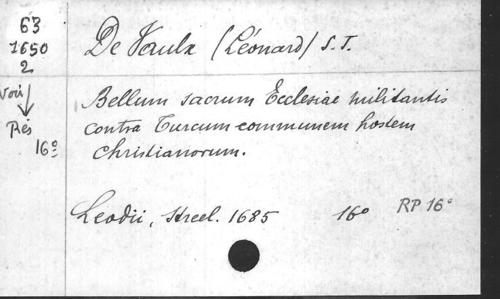 63
1650
2
Voir
Rés
16º
De Vaulx (Léonard) S.T.
Bellum sacrum Ecclesiae militantis
contra Turcum communem hostem
Christianorum.
Leodii, Streel. 1685 16º RP 16º